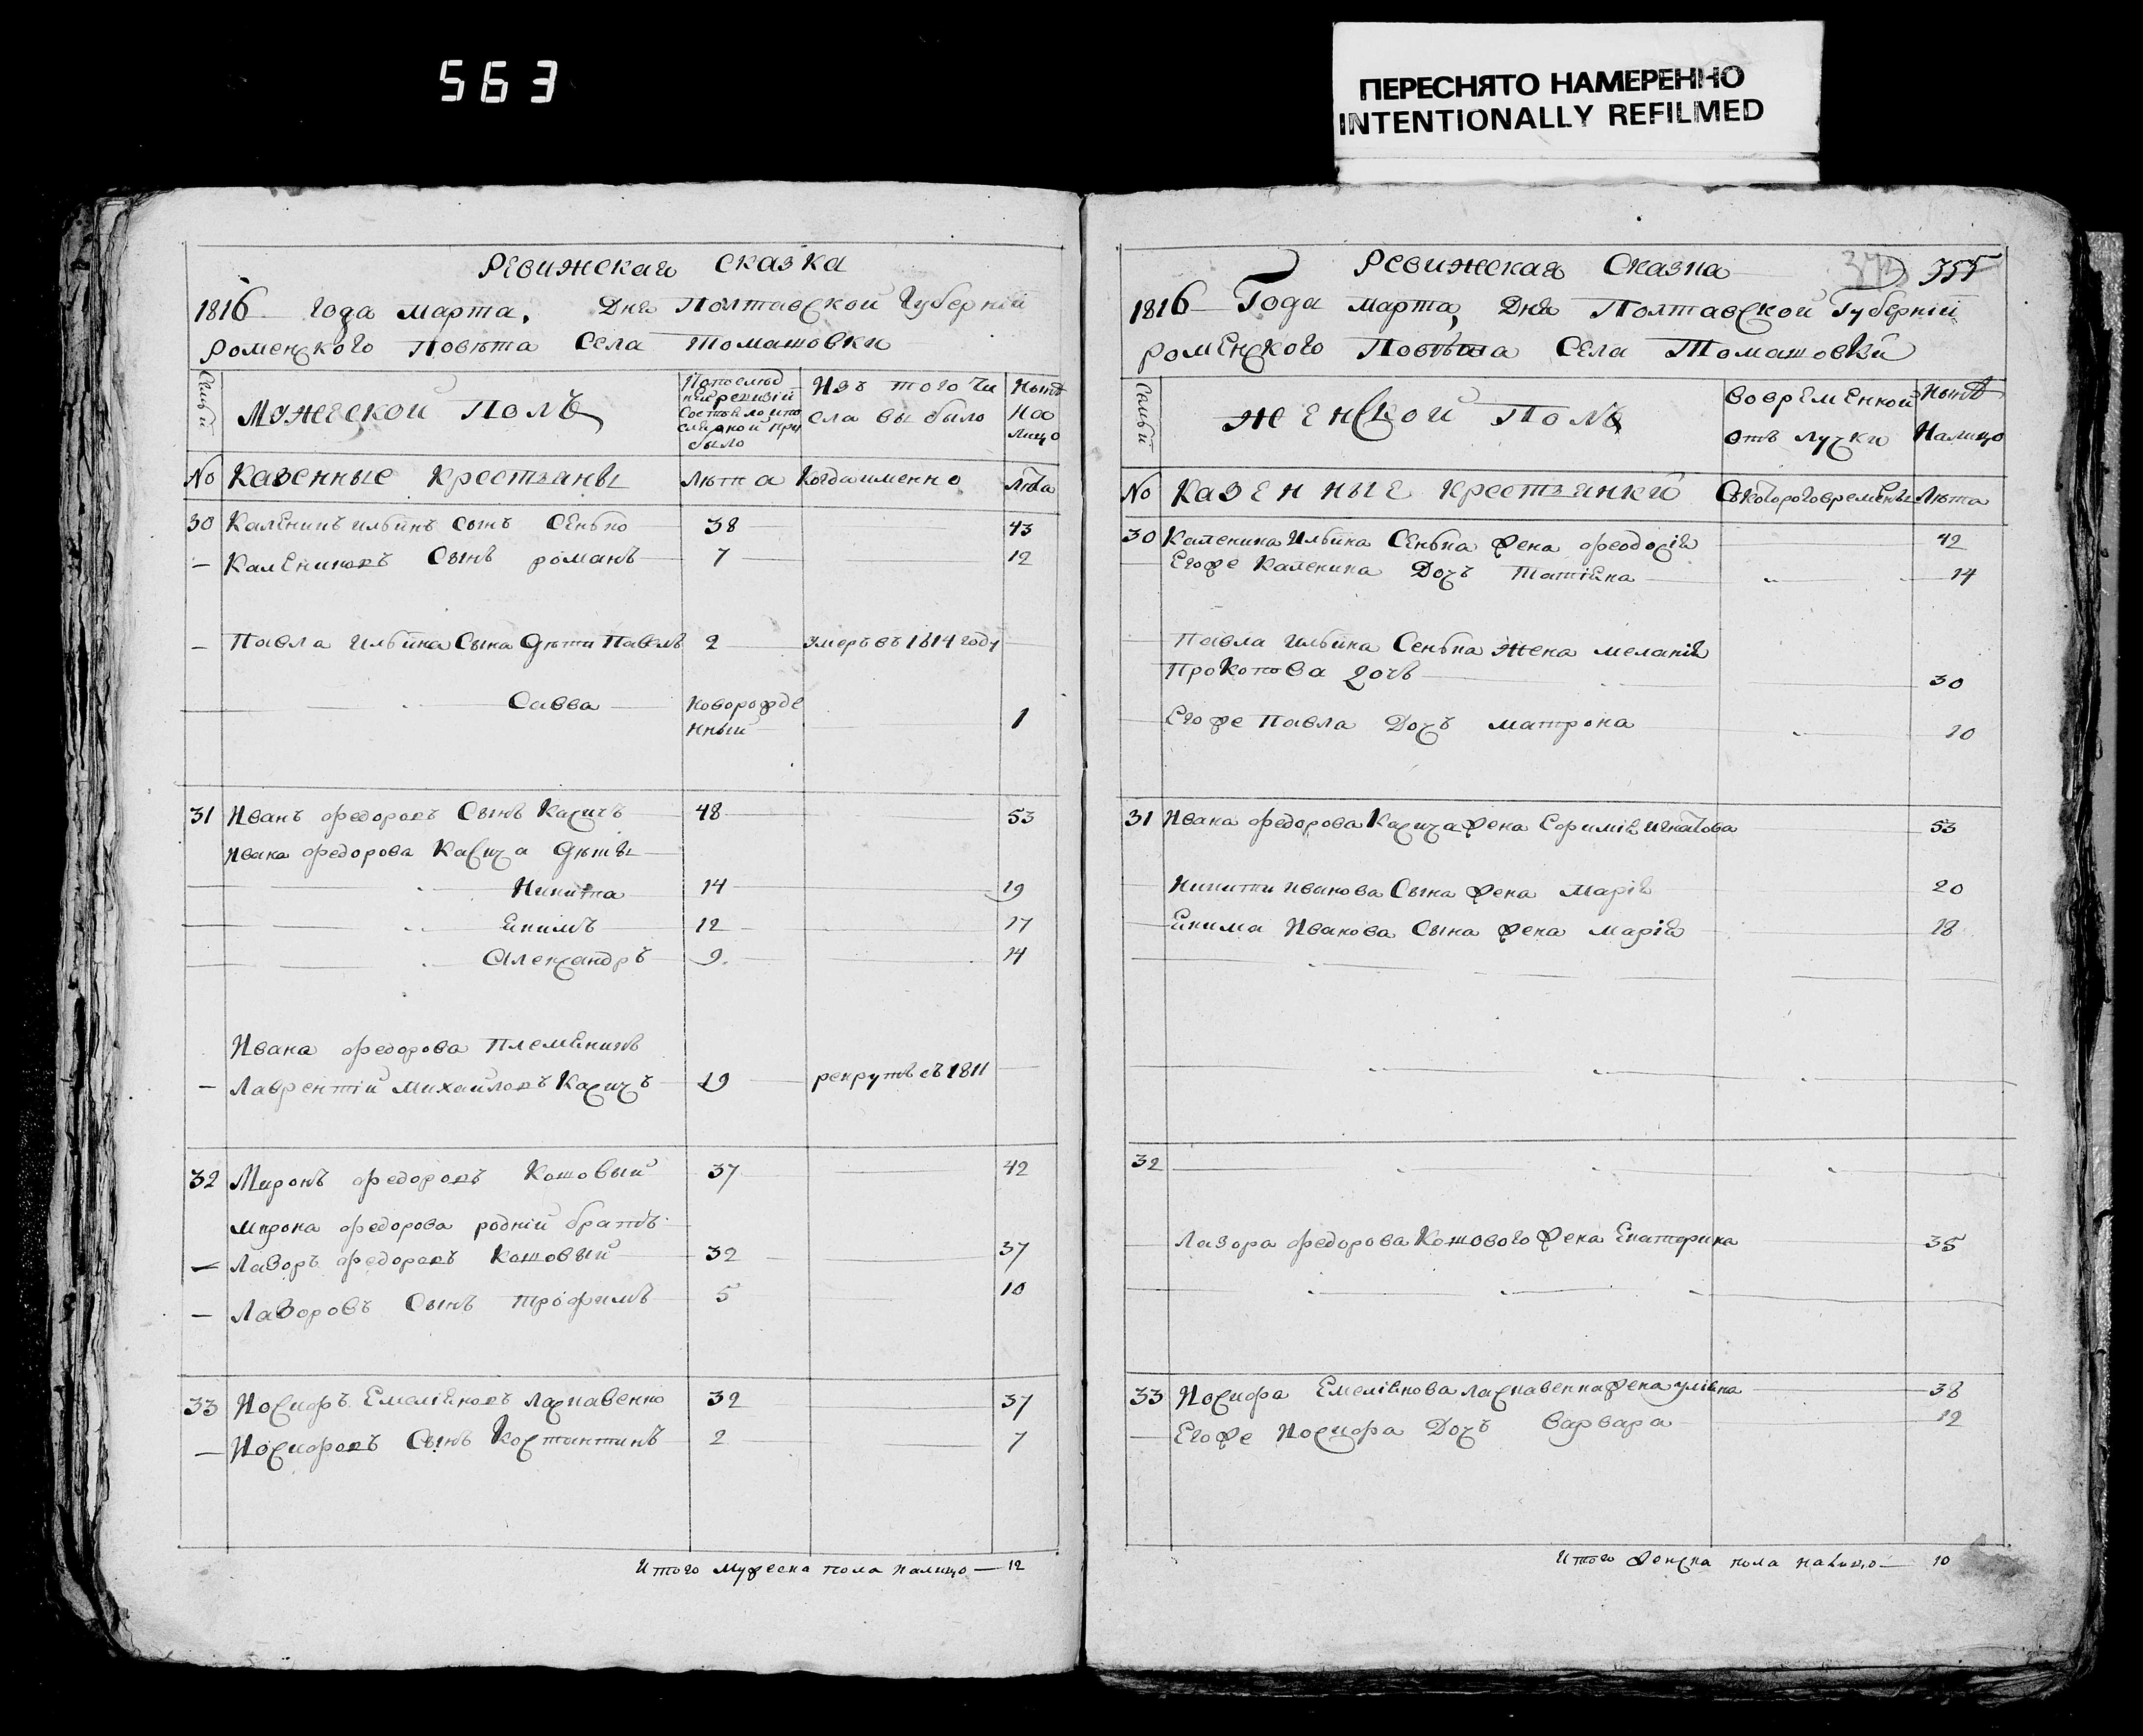 563
ПЕРЕСНЯТО НАМЕРЕННО
INTENTIONALLY REFILMED
Ревижская сказка
1816 года марта, Дня Полтавской Губерніи
Роменского Повѣта Села Томашовки
Мужеской Полъ
Изъ того чи
сла вы было
Нынѣ
На
лицо
No Казенные Крестьяны Лѣта Когда именно Лѣта
30 Каленикъ Ильинъ сынъ Сенько 38 43
— Калениковъ Сынъ романъ 7 12
— Павла Ильина Сына Дѣти Павелъ 2 Умеръ въ 1814 году
Савва Новорожде
нный 1
31 Иванъ Федоровъ Сынъ Касичъ 48 53
Ивана Федорова Касича Дѣты
Никита 14 19
Екимъ 12 17
Александръ 9 14
Ивана Федорова Племеникъ
— Лаврентій Михайловъ Касичъ 19 рекрутъ съ 1811
32 Миронъ Федоровъ Кошовый 37 42
Мирона Федорова родній братъ
— Лазоръ Федоровъ Кошовый 32 37
— Лазоровъ Сынъ Трофимъ 5 10
33 Іосифъ Емеліяновъ Ласкавенко 32 37
— Іосифовъ Сынъ Костантинъ 2 7
Итого Мужеска пола налицо — 12
Ревижская Сказка 355
1816 Года марта, Дня Полтавской Губерніи
роменского Повѣта Села Томашовки
Женской Полъ
во временной
отъ лучки
Нынѣ
Налицо
No Казенные крестьянки Съ которого времены Лѣта
30 Каленика Ильина Сенька жена Феодосія 42
Егоже Каленика Дочъ Татіяна 14
Павла Ильина Сенька жена меланія
Прокопова дочь 30
Егоже Павла Дочъ матрона 10
31 Ивана Федорова Касича жена Евфимія Игнатова 53
Никити Иванова Сына жена Марія 20
Екима Иванова Сына жена марія 18
32
Лазора Федорова Кошового жена Екатерина 35
33 Іосифа Емеліянова Ласкавенка жена уліяна 38
Егоже Іосифа Дочъ Варвара 12
Итого женска пола налицо — 10